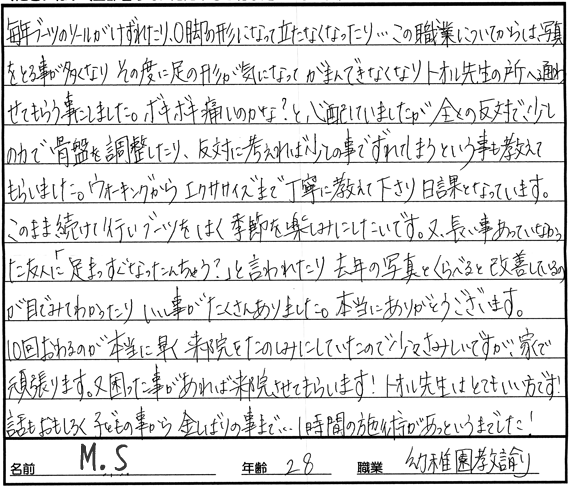 毎年ブーツのソールがけずれたり、O脚の形になって立たなくなったり…この職業についてからは、写真
をとる事が多くなり その度に足の形が気になって がまんできなくなり トオル先生の所へ通わ
せてもらう事にしました。ボキボキ痛いのかな？と心配していましたが 全くの反対で、少し
の力で骨盤を調整したり、反対に考えれば少しの事でずれてしまうという事も教えて
もらいました。ウォーキングから エクササイズまで丁寧に教えて下さり 日課となっています。
このまま続けて行い ブーツをはく季節を楽しみにしたいです。又、長い事あっていなかっ
た友人に「足まっすぐなったんちゃう？」と言われたり 去年の写真とくらべると改善しているの
が目でみてわかったり いい事がたくさんありました。本当にありがとうございます。
10回おわるのが本当に早く 来院をたのしみにしていたので少しさみしいですが、家で
頑張ります。又困った事があれば来院させてもらいます！トオル先生はとてもいい方です!
話もおもしろく 子どもの事から 金しばりの事まで…1時間の施術があっというまでした！
名前 M.S 年齢 28 職業 幼稚園教諭